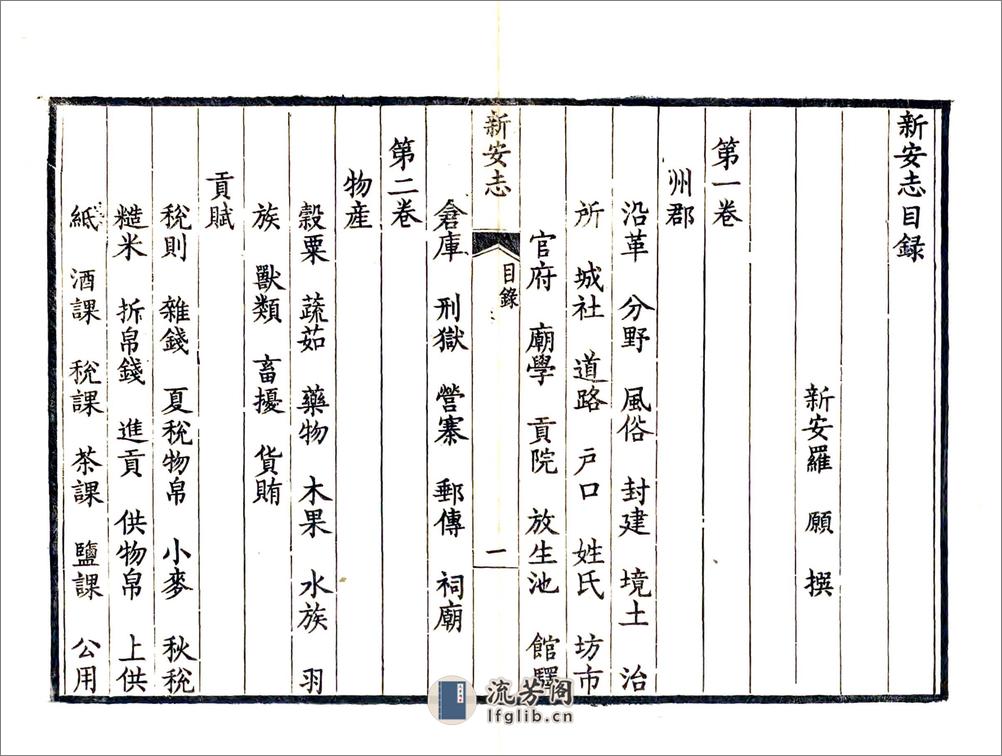 新安志目録
新安羅　願　撰
第一卷
州郡
沿革　分野　風俗　封建　境土　治
所　城社　道路　戸口　姓氏　坊市
官府　廟學　貢院　放生池　館驛
新安志　目錄　一
倉庫　刑獄　營寨　郵傳　祠廟
第二卷
物産
穀粟　蔬茹　藥物　木果　水族　羽
族　獸類　畜擾　貨賄
貢賦
稅則　雜錢　夏稅物帛　小麥　秋稅
糙米　折帛錢　進貢　供物帛　上供
紙　酒課　稅課　茶課　鹽課　公用
流芳阁
lfglib.cn